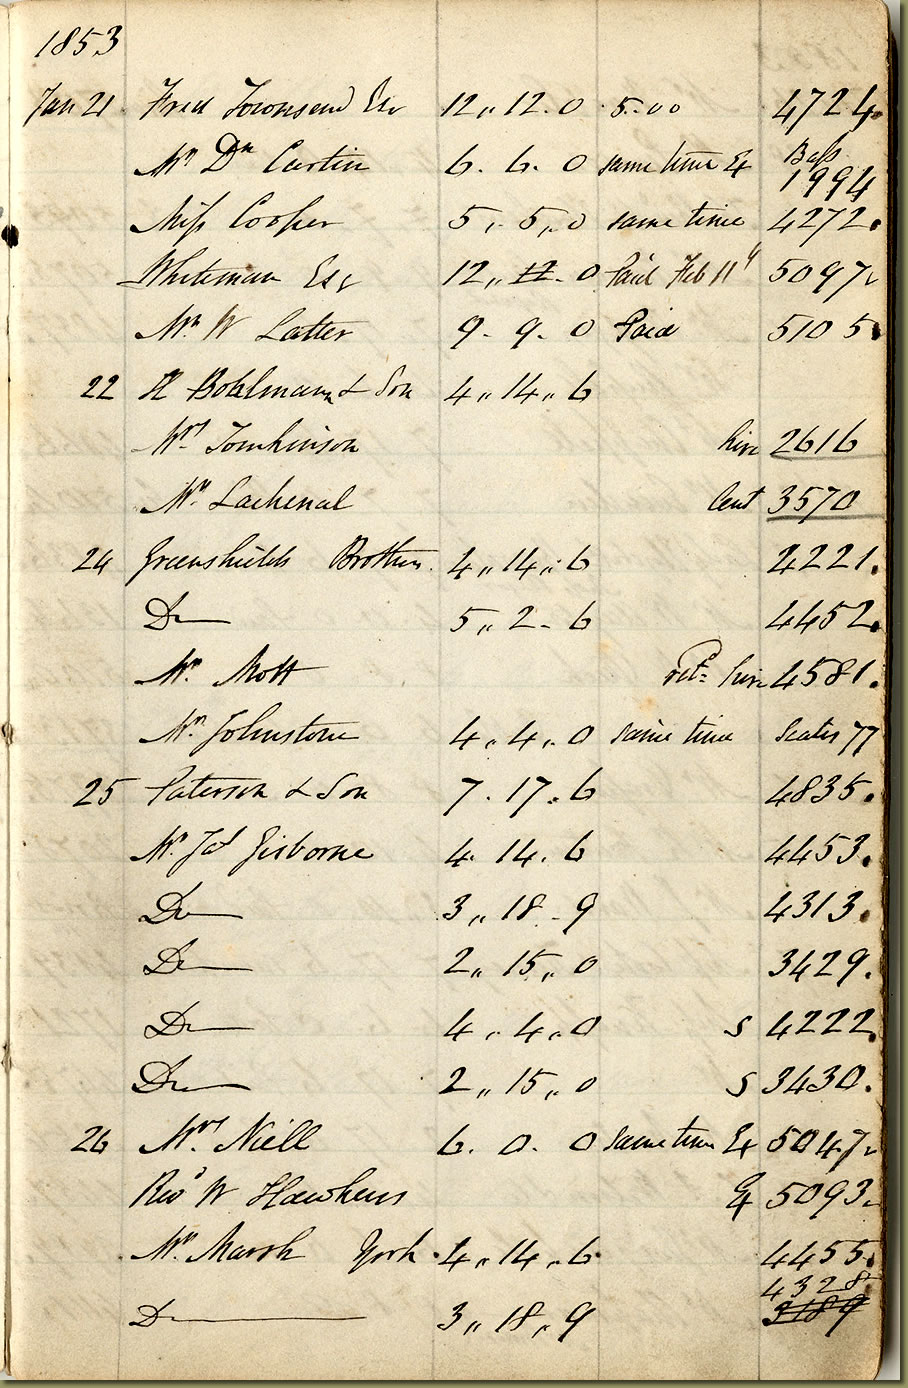 1853
Jan 21 Fred Townsend Esq 12,, 12. 0 5..00 4724.
Mr Dn Curtin 6. 6. 0 same time Ex Bass 1994
Miss Cooper 5,. 5,,0 same time 4272.
Whiteman Esq 12,, 12. 0 Paid Feb 11th 5097.
Mr W Latter 9. 9. 0 Paid 5105.
22 H Bohlmann & Son 4,,14,,6
Mrs Tomkinson hire 2616
Mr Lachenal lent 3570
24 Greenshields Brothers. 4,,14,,6 4221.
Do 5,,2.6 4452.
Mr Mott ret. hire 4581.
Mr Johnstone 4,.4,.0 same time Seates 77
25 Paterson & Son 7.17.6 4835.
Mr Jas Gisborne 4.14.6 4453.
Do 3,,18.9 4313.
Do 2,,15,,0 3429.
Do 4,.4,.0 S 4222.
Do 2,,15,,0 S 3430.
26 Mrs Niell 6. 0. 0 same time Ex 5047.
Revd W Hawkens Ex 5093.
Mr Marsh York. 4,,14,,6 4455.
4328.
Do 3,,18,,9 3189